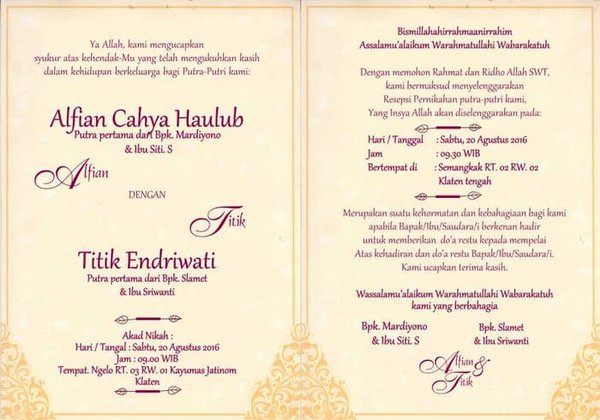 Ya Allah, kami mengucapkan
syukur atas kehendak-Mu yang telah mengukuhkan kasih
dalam kehidupan berkeluarga bagi Putra-Putri kami:
Alfian Cahya Haulub
Putra pertama dari Bpk. Mardiyono
& Ibu Siti. S
Alfian
DENGAN
Titik
Titik Endriwati
Putra pertama dari Bpk. Slamet
& Ibu Sriwanti
Akad Nikah :
Hari / Tanggal : Sabtu, 20 Agustus 2016
Jam : 09.00 WIB
Tempat. Ngelo RT. 03 RW. 01 Kayumas Jatinom
Klaten
Bismillahahirrahmaanirrahim
Assalamu'alaikum Warahmatullahi Wabarakatuh
Dengan memohon Rahmat dan Ridho Allah SWT,
kami bermaksud menyelenggarakan
Resepsi Pernikahan putra-putri kami,
Yang Insya Allah akan diselenggarakan pada:
Hari / Tanggal : Sabtu, 20 Agustus 2016
Jam : 09.30 WIB
Bertempat di : Semangkak RT. 02 RW. 02
Klaten tengah
Merupakan suatu kehormatan dan kebahagiaan bagi kami
apabila Bapak/Ibu/Saudara/i berkenan hadir
untuk memberikan do'a restu kepada mempelai
Atas kehadiran dan do'a restu Bapak/Ibu/Saudara/i.
Kami ucapkan terima kasih.
Wassalamu'alaikum Warahmatullahi Wabarakatuh
kami yang berbahagia
Bpk. Mardiyono
& Ibu Siti. S
Bpk. Slamet
& Ibu Sriwanti
Alfian &
Titik